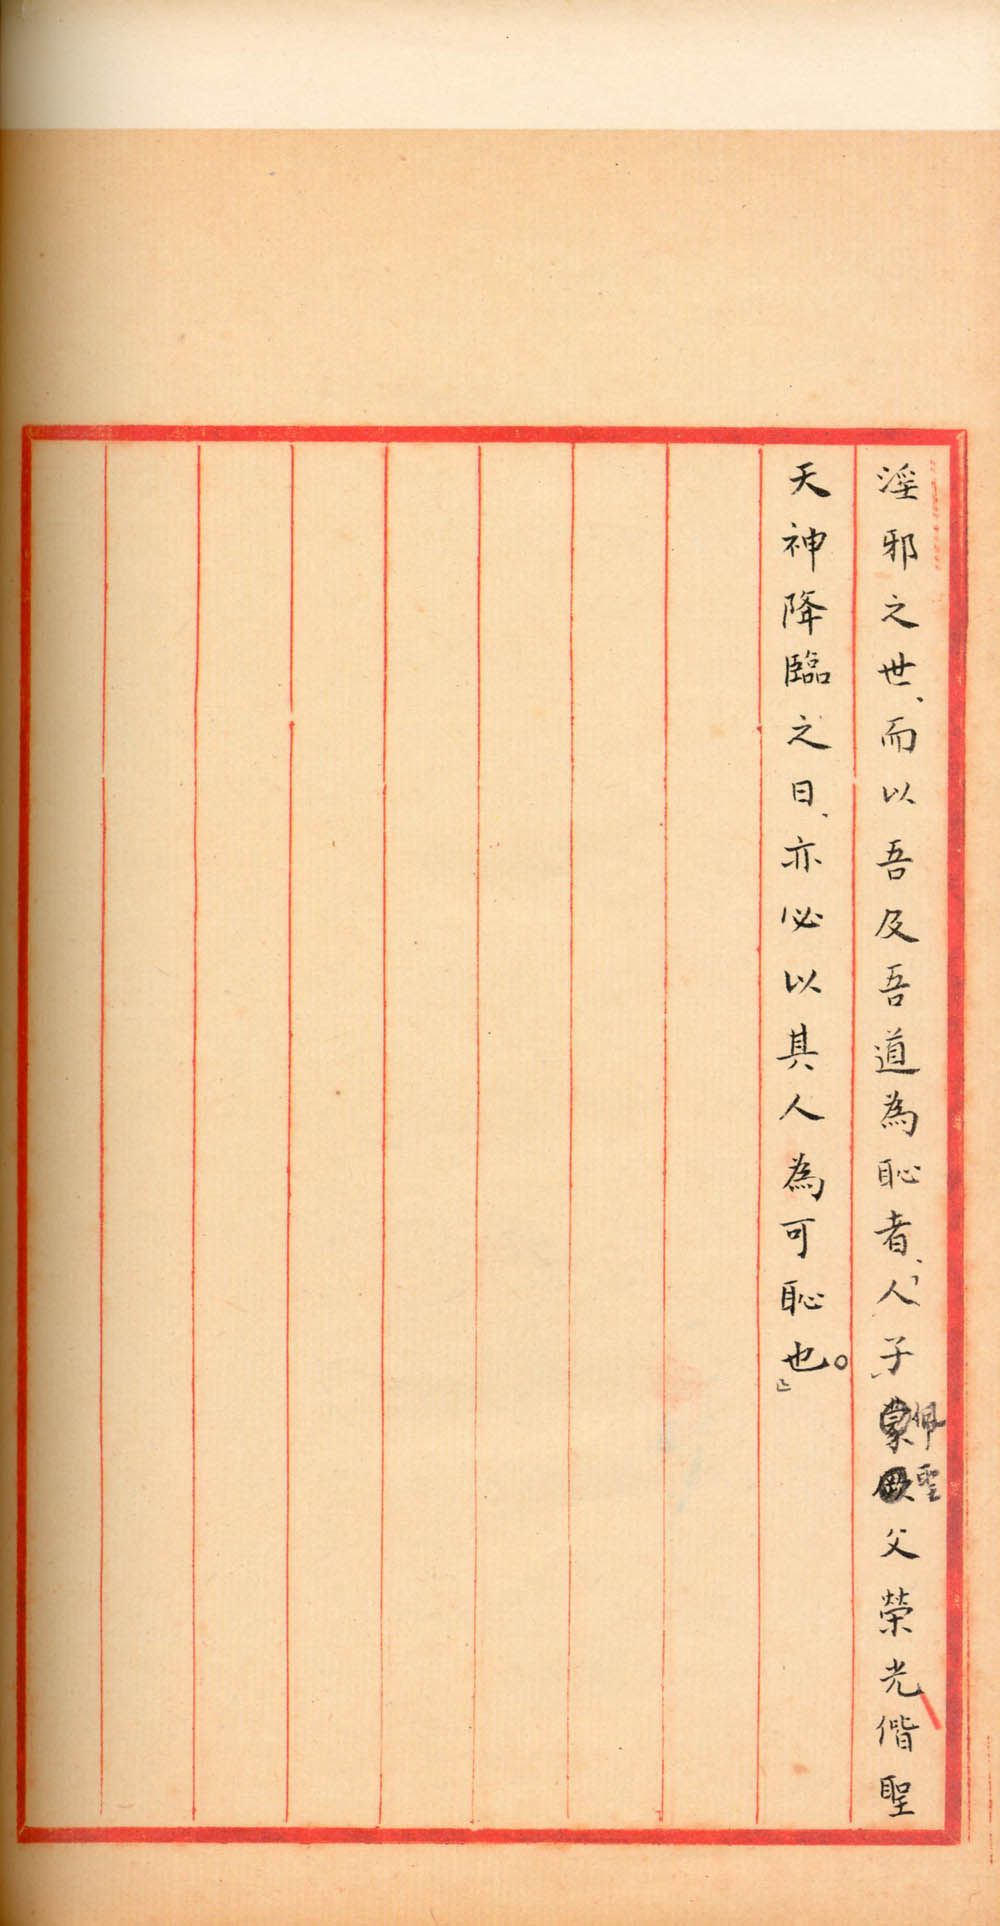 淫邪之世、而以吾及吾道為恥者、「人子」佩聖父榮光偕聖
天神降臨之日、亦必以其人為可恥也。」